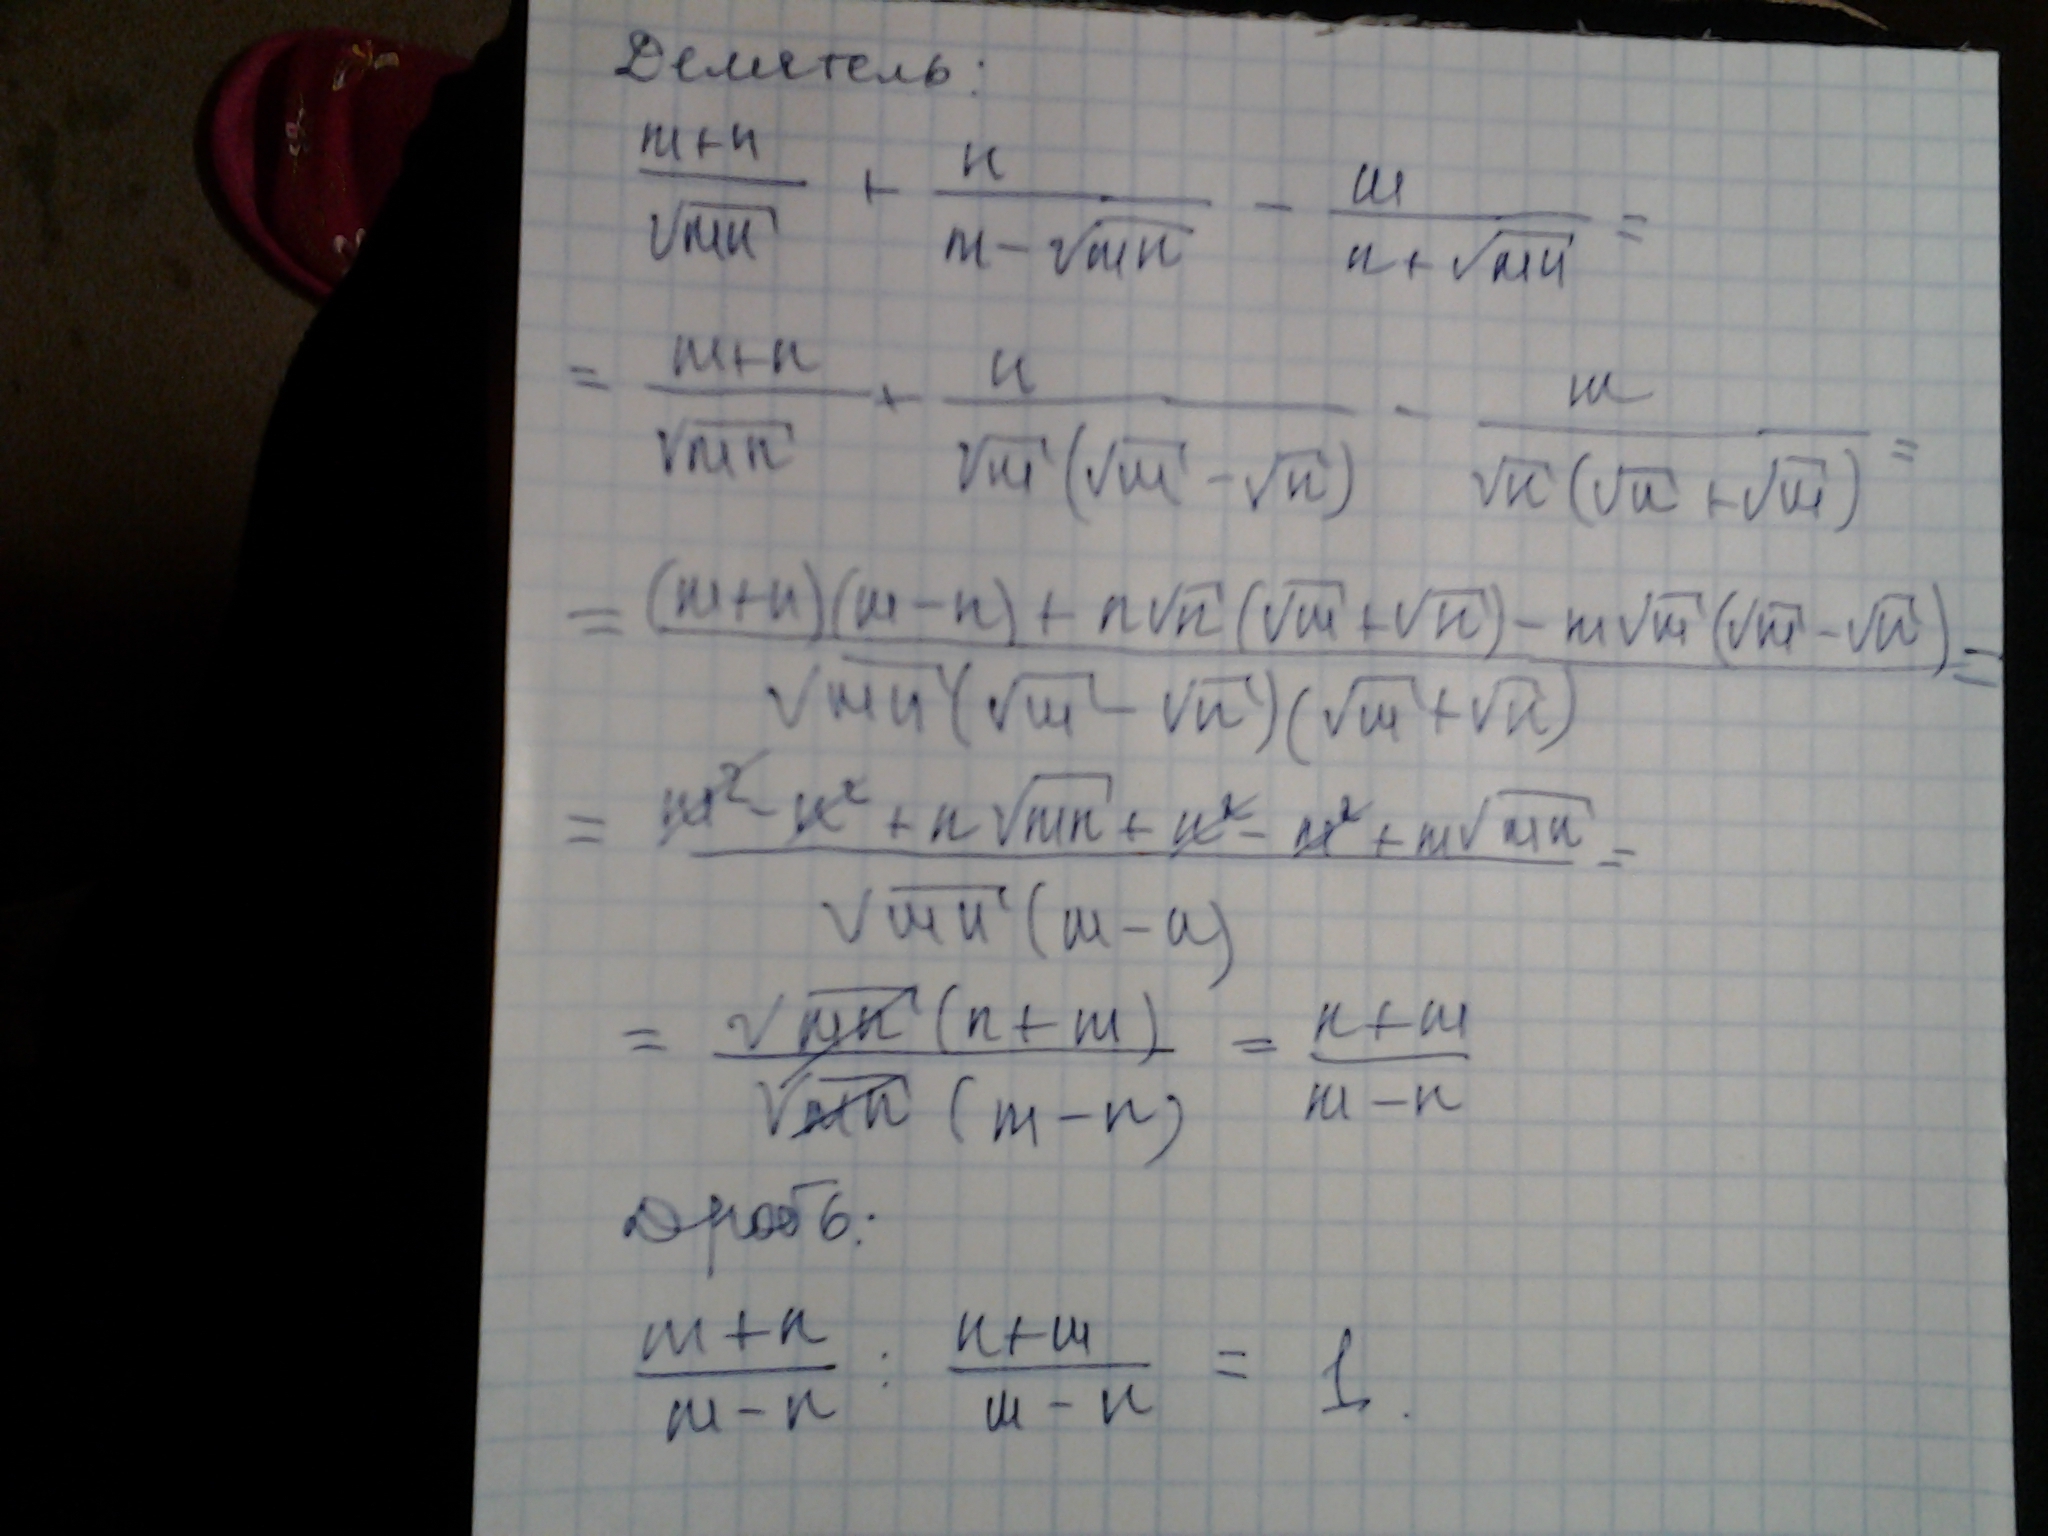 Делитель:
(m+n)/√(mn) + n/(m-√(mn)) - m/(n+√(mn)) =
= (m+n)/√(mn) + n/(√m(√m-√n)) - m/(√n(√n+√m)) =
= ((m+n)(m-n)+n√n(√m+√n)-m√m(√m-√n))/(√(mn)(√m-√n)(√m+√n)) =
= (m²-n²+n√(mn)+n²-m²+m√(mn))/(√(mn)(m-n)) =
= (√(mn)(n+m))/(√(mn)(m-n)) = (n+m)/(m-n)
Дробь:
(m+n)/(m-n) : (n+m)/(m-n) = 1.